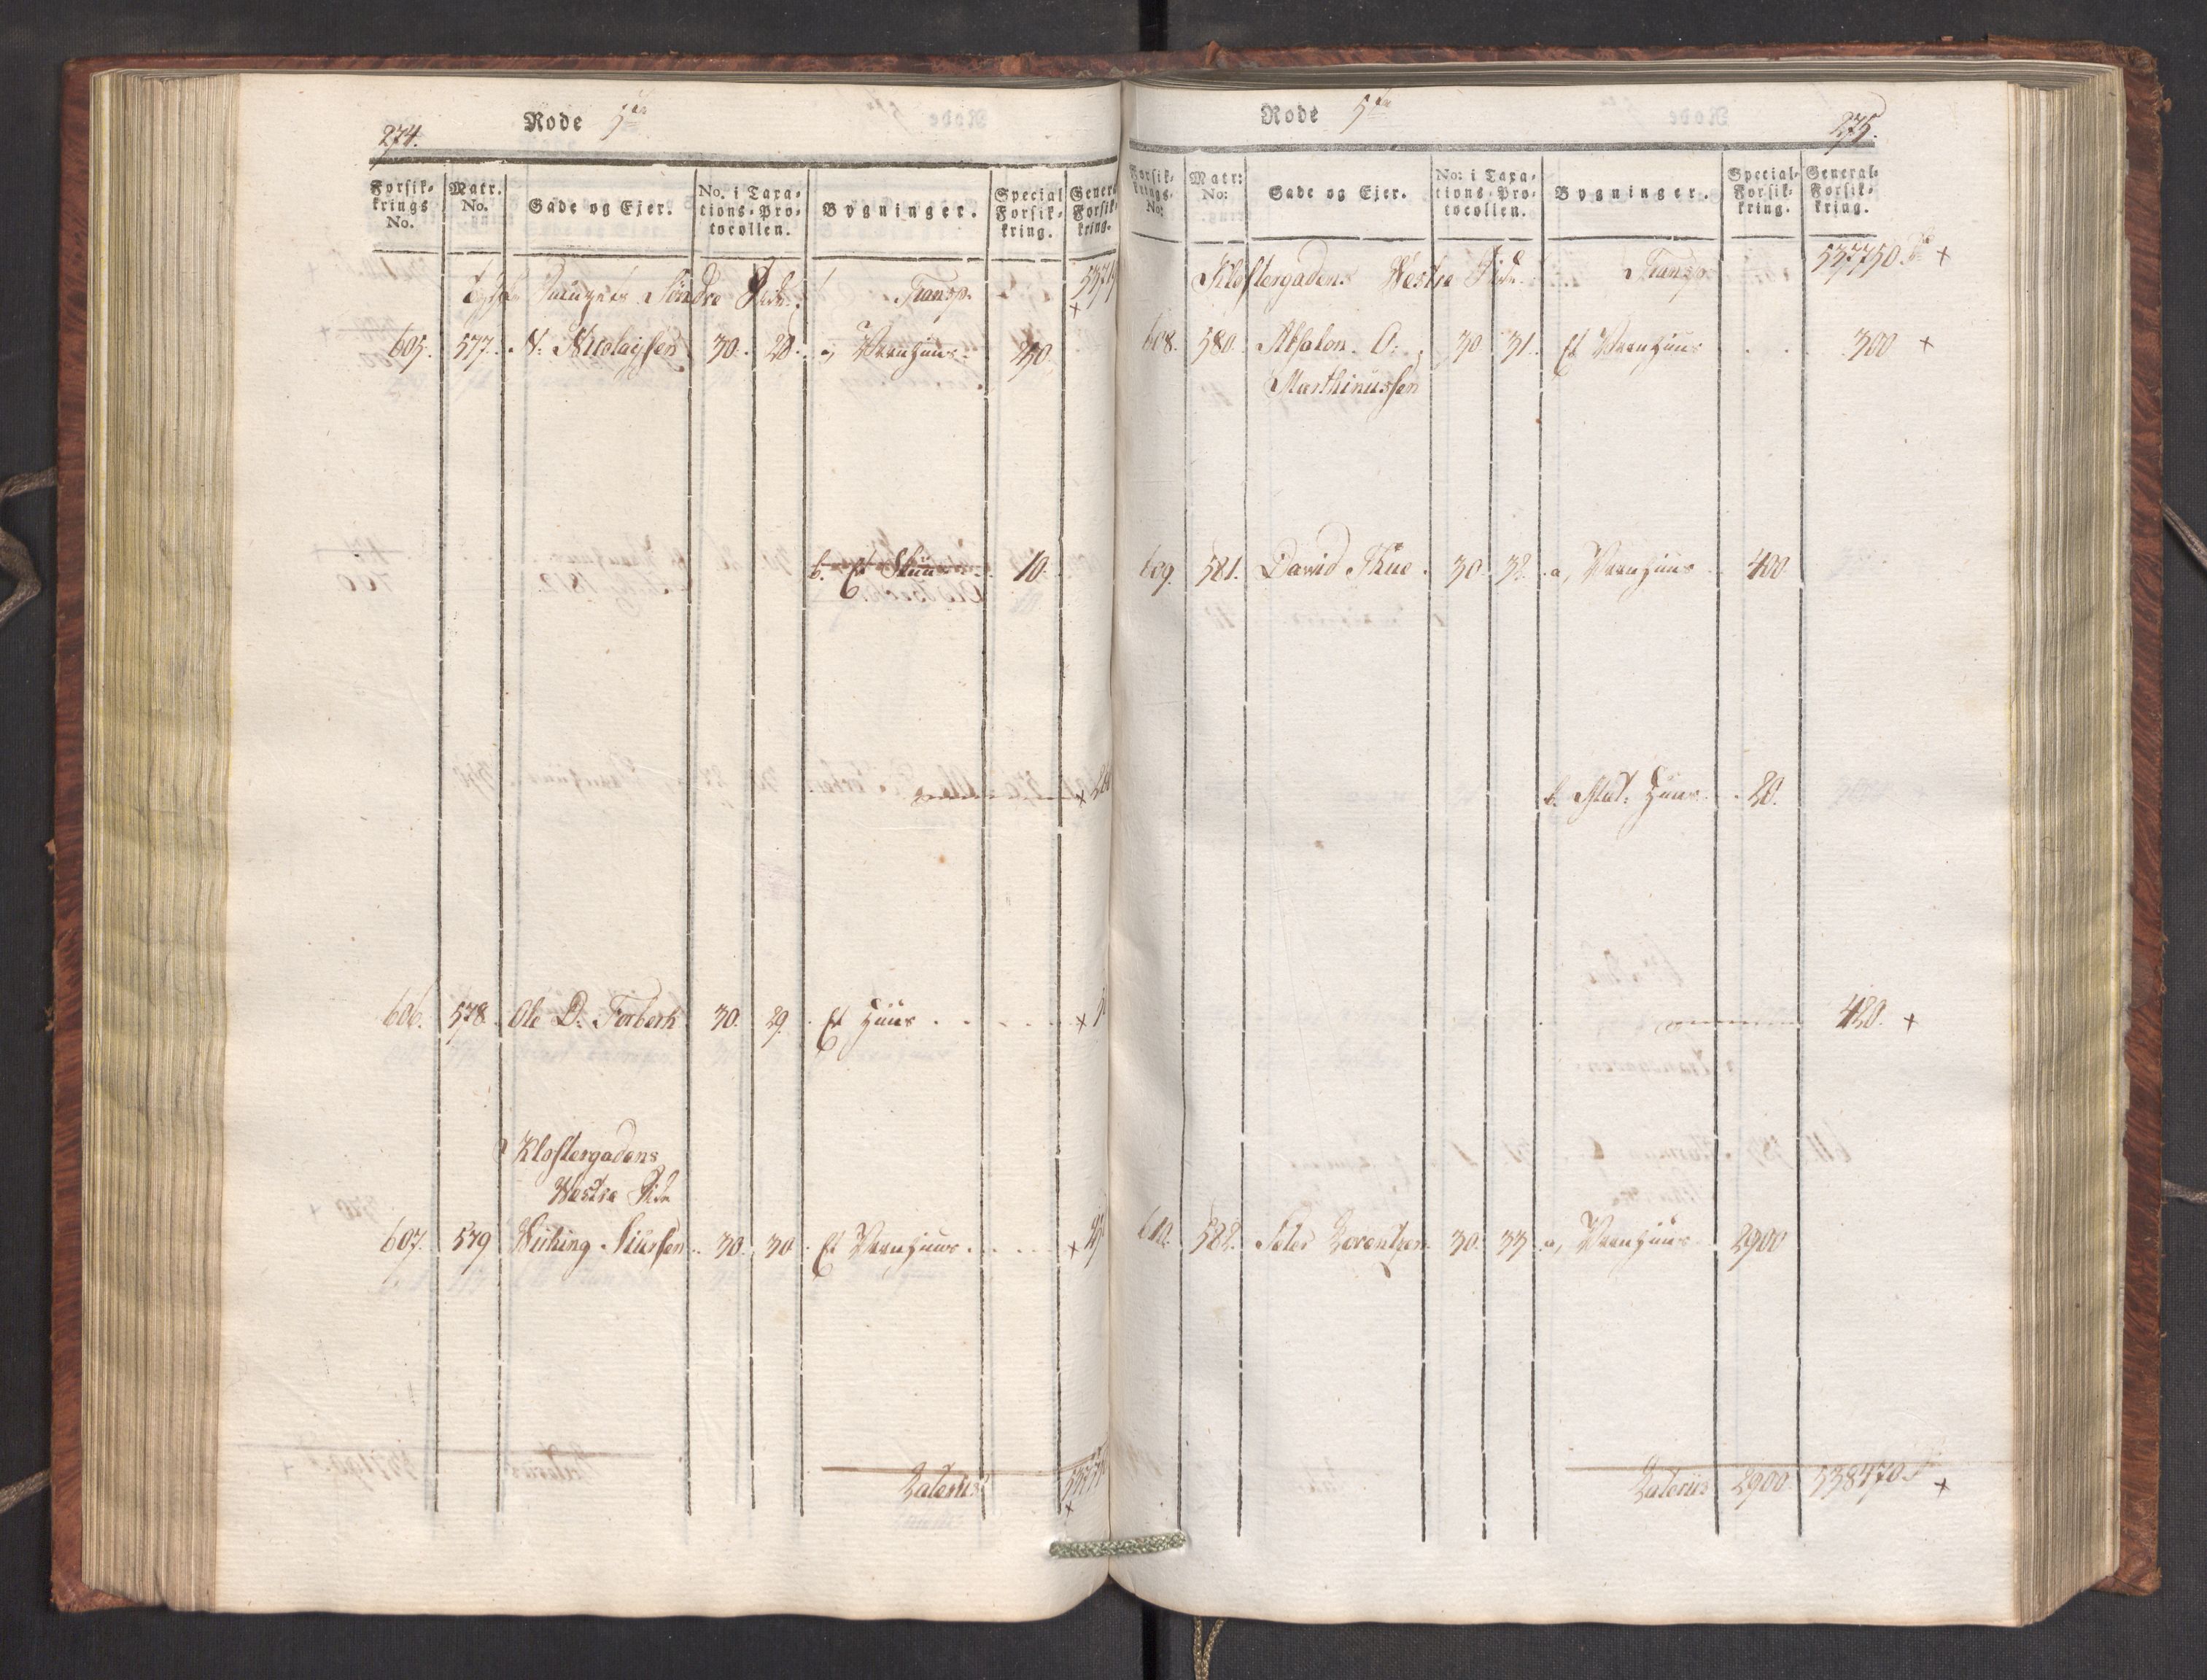 274.
Rode 5te
Forsik-
krings
No.
Matr.
No.
Gade og Ejer.
No. i Taxa-
tions-Pro-
tocollen.
Bygninger.
Special
Forsik-
kring.
Søndre Side Transp.
605. 577. N. Nicolaysen 30. 28. a, Vaanhuus 250.
b. Et Skuur 10.
606. 578. Ole D. Forberh 30. 29. Et Huus
Klostergadens
Westre Side
607. 579 Wiching Siursen 30. 30. Et Vaanhuus
Lateris
Rode 5te
275.
Forsik-
krings-
No:
Matr:
No:
Gade og Ejer.
No: i Taxa-
tions-Pro-
tocollen.
Bygninger.
Special-
Forsik-
kring.
General-
Forsik-
kring.
Klostergadens Westre Side Transp. 537750 +
608. 580. Absalon O. 30 31. Et Vaanhuus 300 +
Marthinussen
609. 581. David Thue. 30. 32. a, Vaanhuus 400
b. Huus 20.
420. +
610. 582. Peter Lorentzen. 30. 33 a, Vaanhuus 2900
Lateris 2900 538470 +